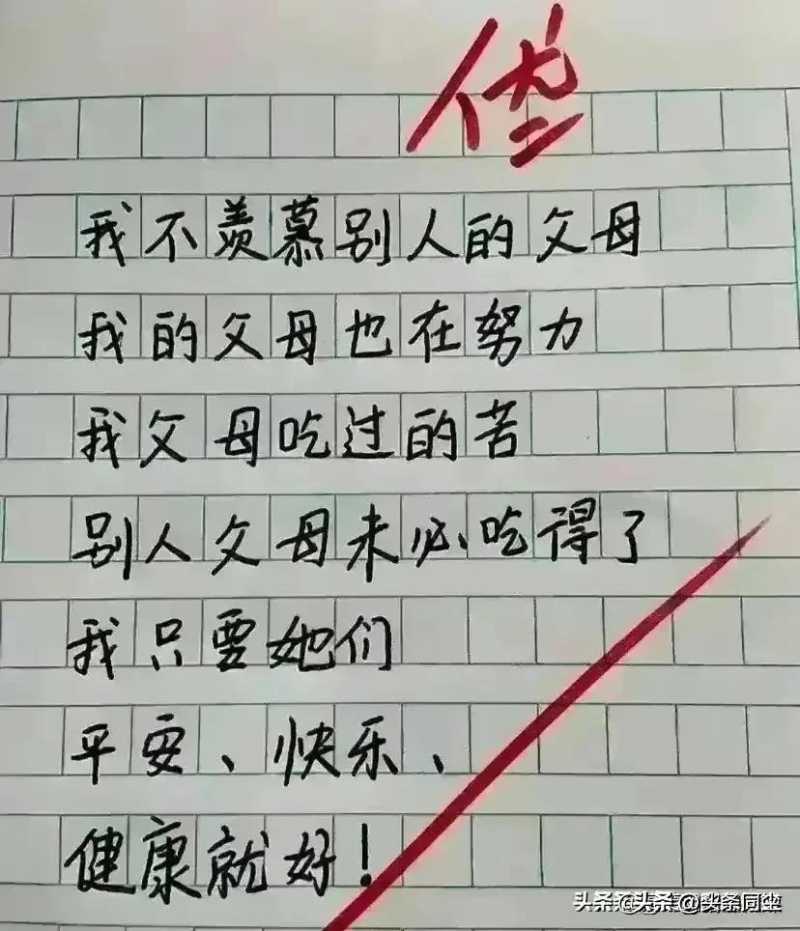 我不羡慕别人的父母
我的父母也在努力
我父母吃过的苦
别人父母未必吃得了
我只要她们
平安、快乐、
健康就好！